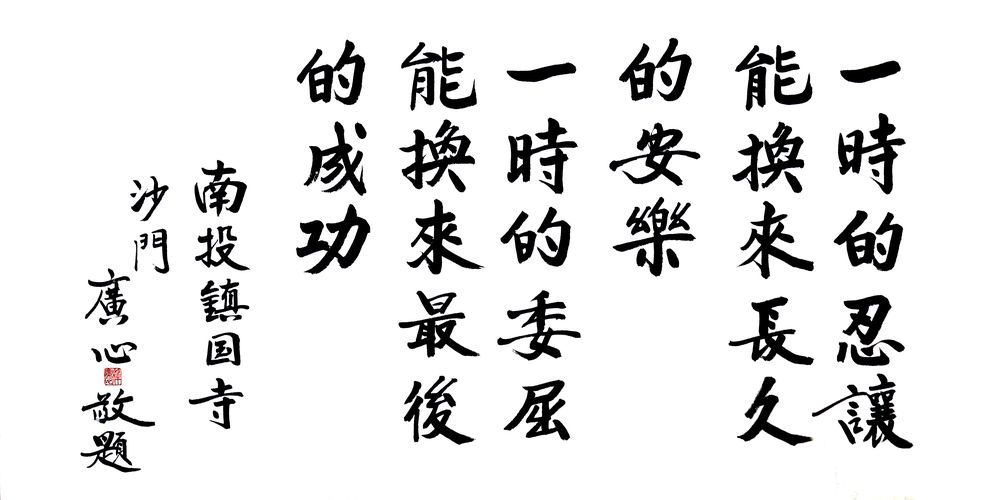 一時的忍讓
能換來長久
的安樂
一時的委屈
能換來最後
的成功
南投鎮国寺
沙門
廣心敬題